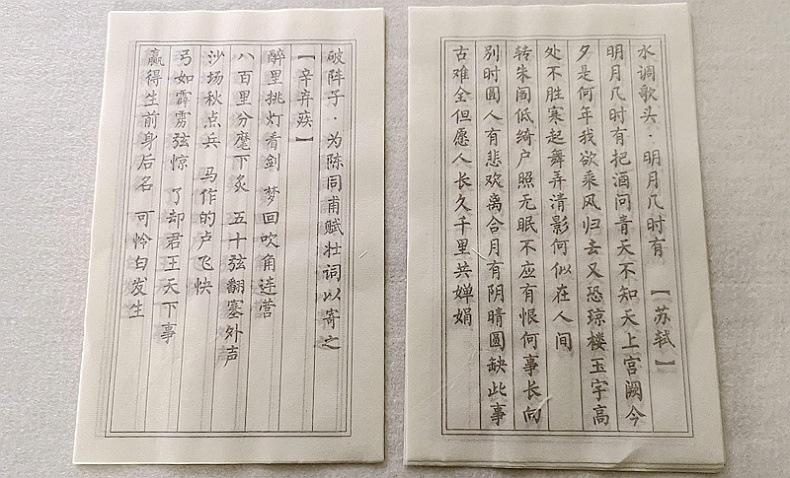 水调歌头·明月几时有 【苏轼】
明月几时有把酒问青天不知天上宫阙今
夕是何年我欲乘风归去又恐琼楼玉宇高
处不胜寒起舞弄清影何似在人间
转朱阁低绮户照无眠不应有恨何事长向
别时圆人有悲欢离合月有阴晴圆缺此事
古难全但愿人长久千里共婵娟
破阵子·为陈同甫赋壮词以寄之
【辛弃疾】
醉里挑灯看剑 梦回吹角连营
八百里分麾下炙 五十弦翻塞外声
沙场秋点兵 马作的卢飞快
弓如霹雳弦惊 了却君王天下事
赢得生前身后名 可怜白发生